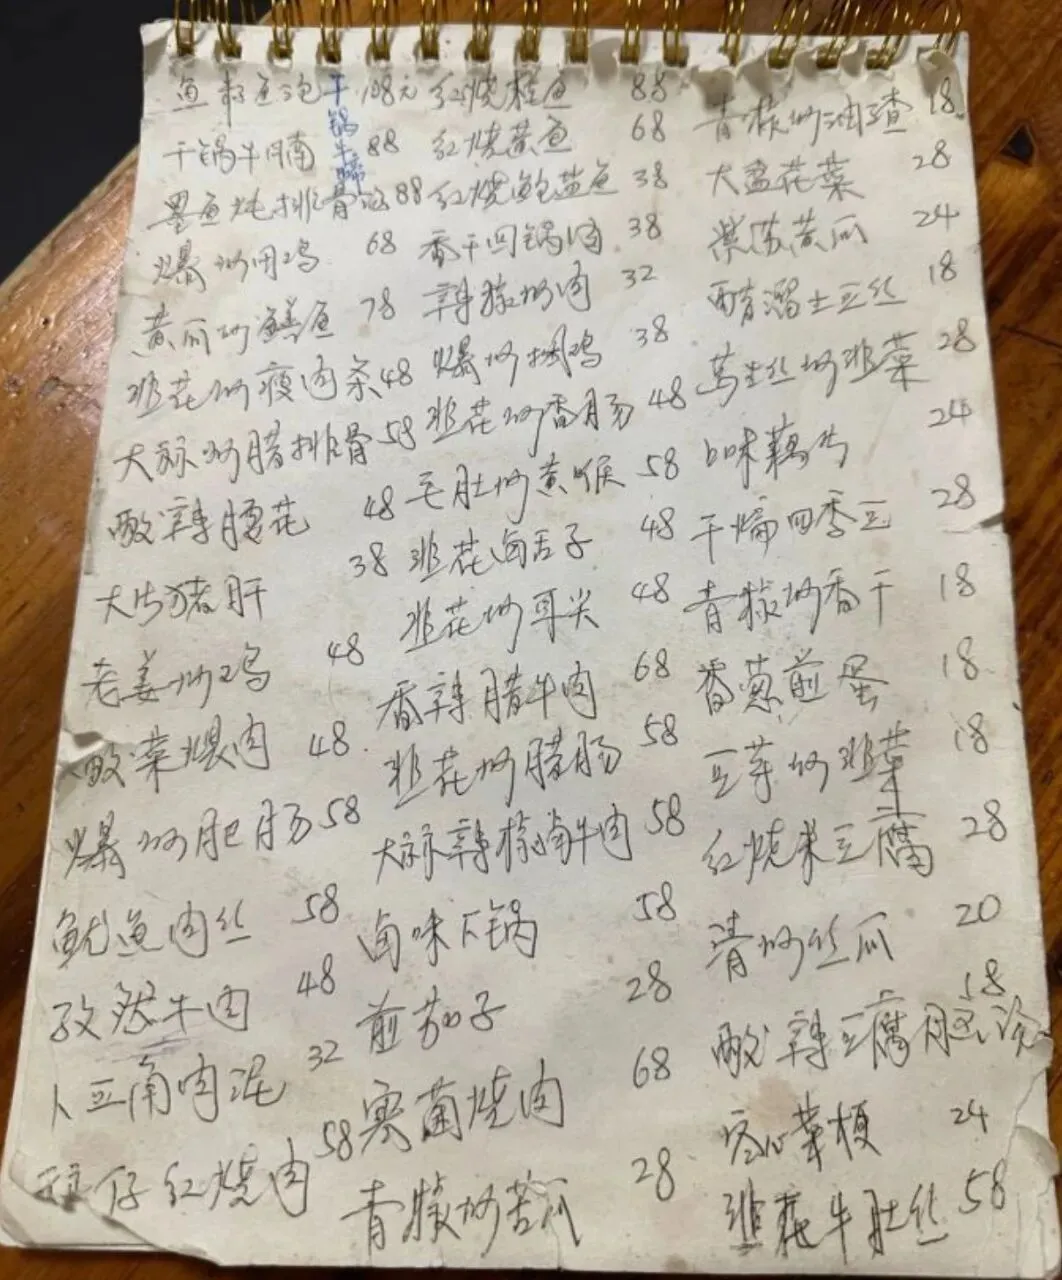 鱼籽鱼泡 108元
干锅牛蹄
干锅牛腩 88
墨鱼炖排骨 88
爆炒田鸡 68
黄瓜炒鳝鱼 78
韭花炒瘦肉条 48
大蒜炒腊排骨 58
酸辣腰花 48
大片猪肝 38
老姜炒鸡 48
酸菜煨肉 48
爆炒肥肠 58
鱿鱼肉丝 58
孜然牛肉 48
卜豆角肉泥 32
仔红烧肉 58
红烧桂鱼 88
红烧黄鱼 68
红烧鲍盐鱼 38
香干回锅肉 38
辣椒炒肉 32
爆炒鸡 38
韭花炒香肠 48
毛肚炒黄喉 58
韭花卤舌子 48
韭花炒耳尖 48
香辣腊牛肉 68
韭花炒腊肠 58
大蒜辣椒卤牛肉 58
卤味下锅 58
煎茄子 28
寒菌烧肉 68
青椒炒苦瓜 28
青椒炒油渣 18
大盆花菜 28
紫苏黄瓜 24
醋溜土豆丝 18
莴笋丝炒韭菜 28
味藕片 24
干煸四季豆 28
青椒炒香干 18
香葱煎蛋 18
豆芽炒韭菜 18
红烧米豆腐 28
清炒丝瓜 20
酸辣豆腐 18
空心菜梗 24
韭花牛肚丝 58